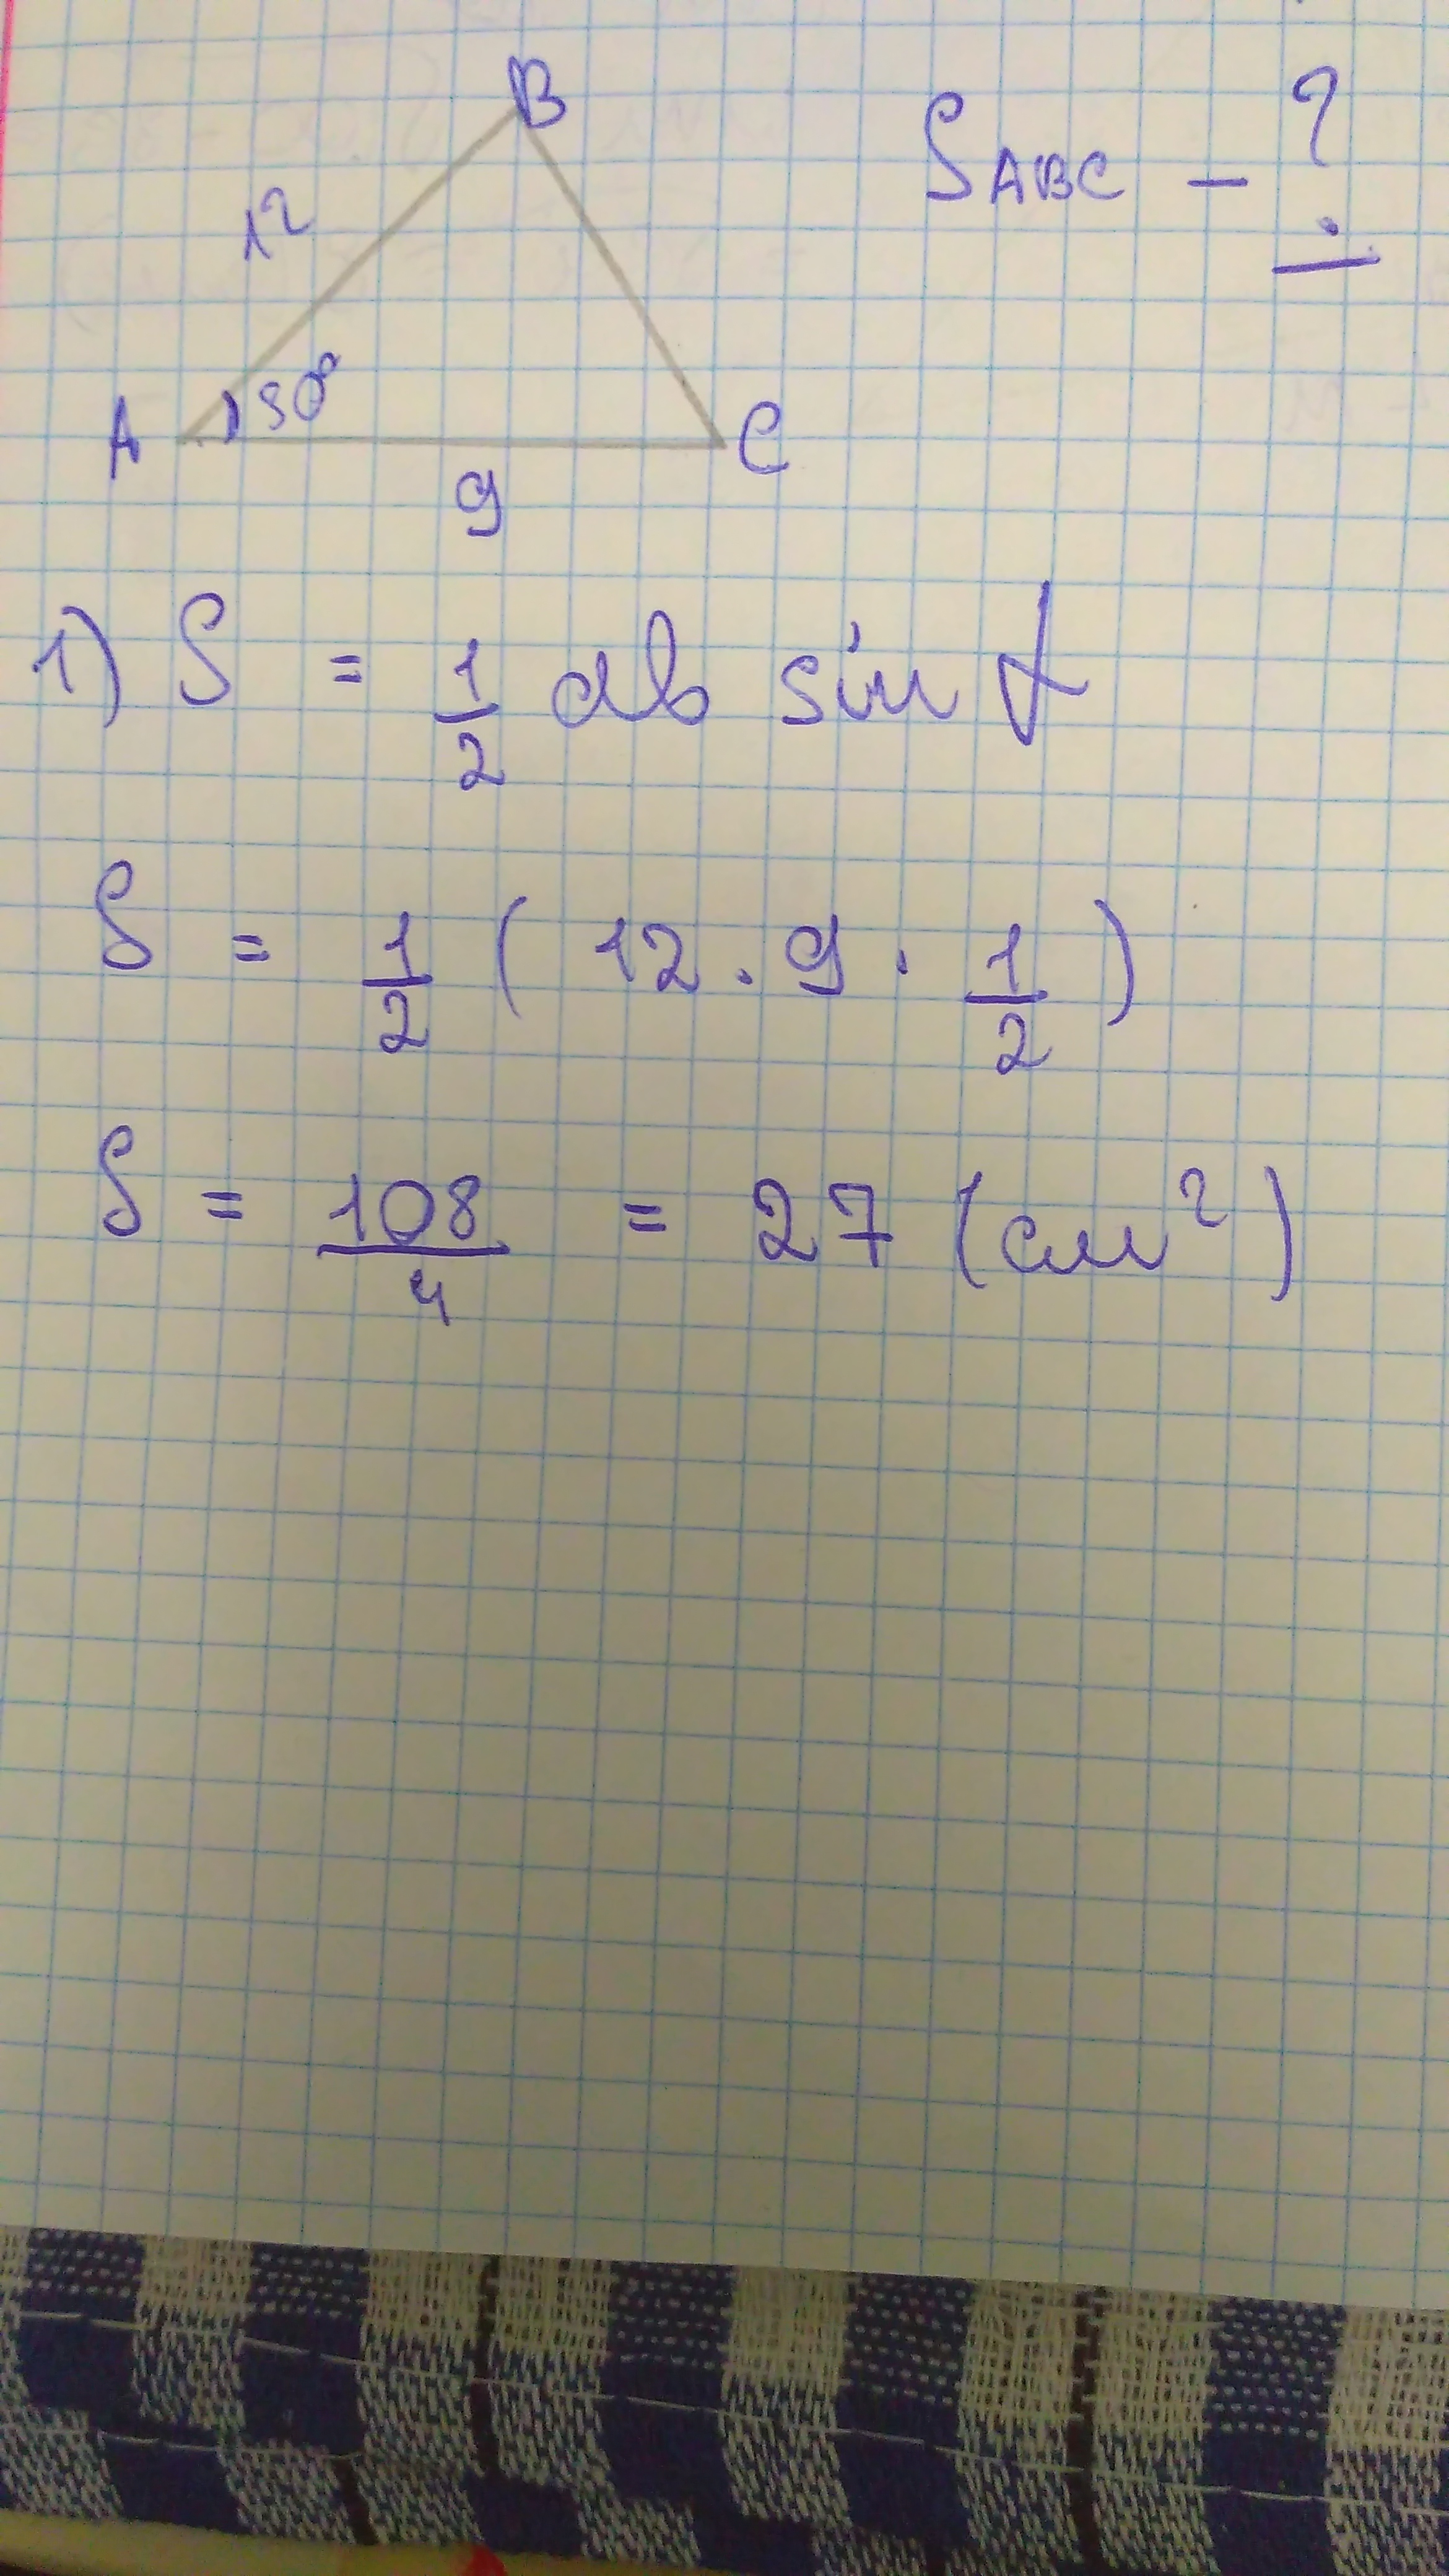 B
S ABC - ?
12
A 30° C
9
1) S = 1/2 ab sin α
S = 1/2 ( 12 · 9 · 1/2 )
S = 108/4 = 27 (см²)